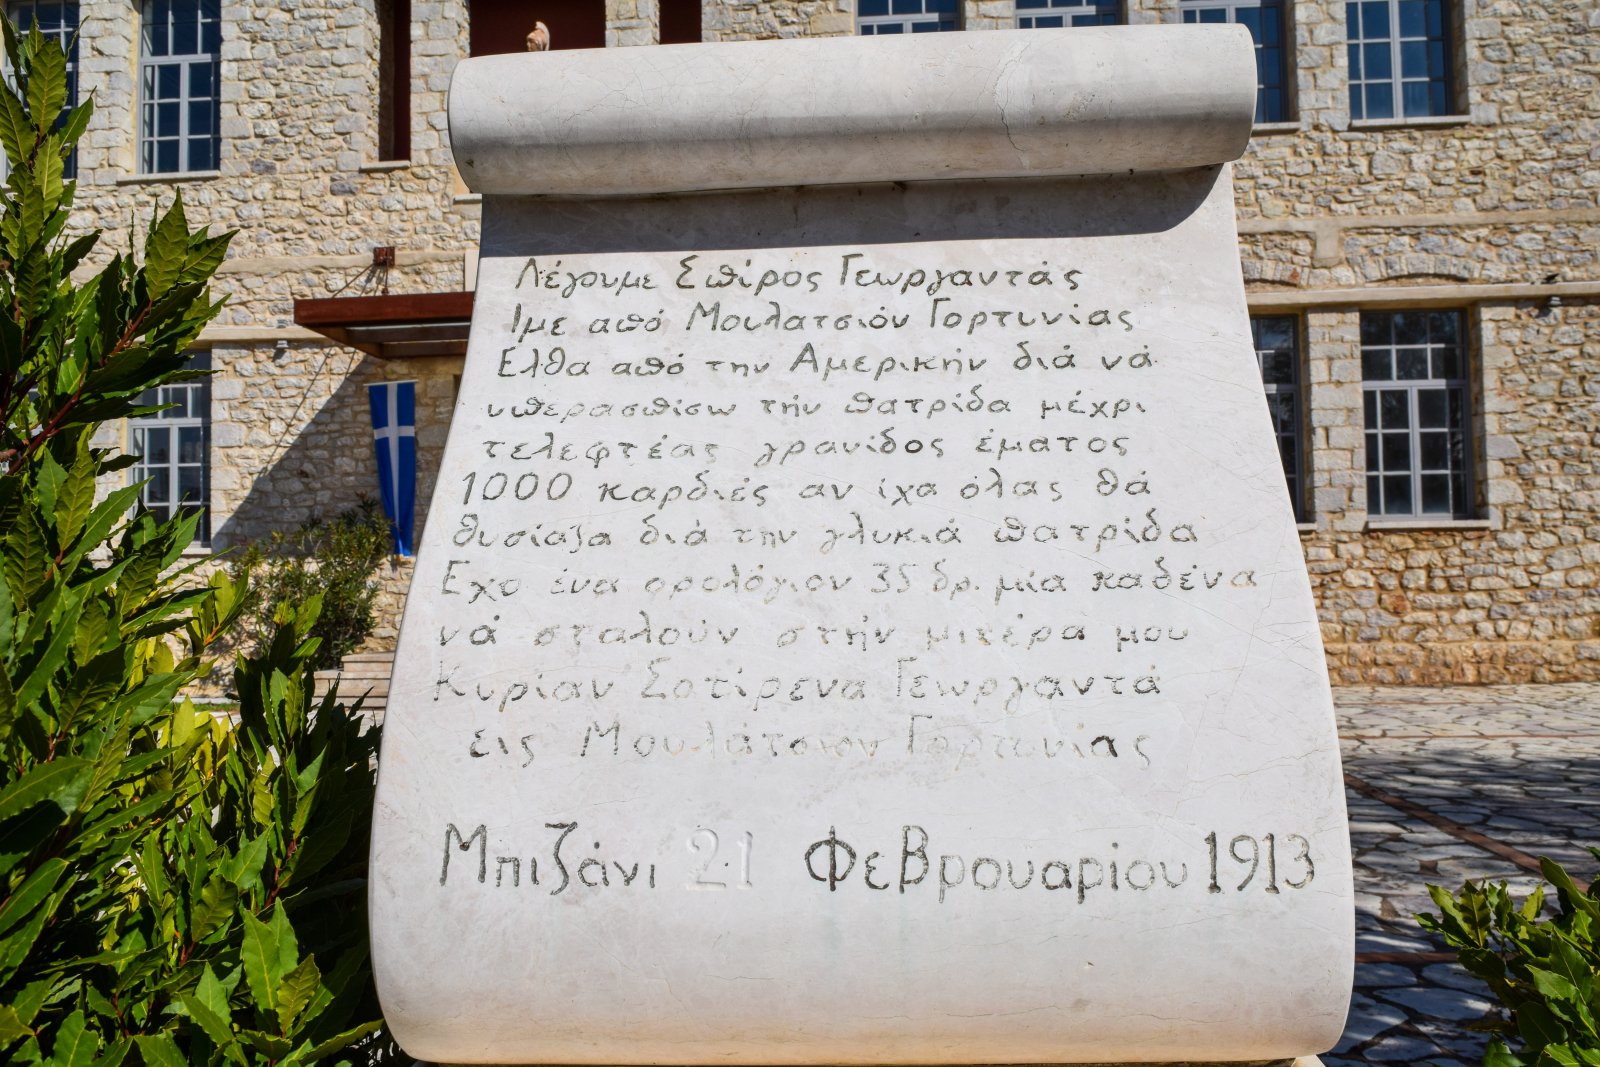 Λέγουμε Σπίρος Γεωργαντάς
Ιμε από Μουλατσιόν Γορτυνίας
Ελθα από την Αμερικήν διά νά
υπερασπίσω τήν πατρίδα μέχρι
τελεφτέας γρανίδος έματος
1000 καρδιές αν ίχα όλας θά
θυσίαζα διά την γλυκιά πατρίδα
Εχο ένα ορολόγιον 35 δρ. μία καδένα
νά σταλούν στήν μιτέρα μου
Κυρίαν Σοτίρενα Γεωργαντά
εις Μουλάτσιον Γορτυνίας
Μπιζάνι 21 Φεβρουαρίου 1913